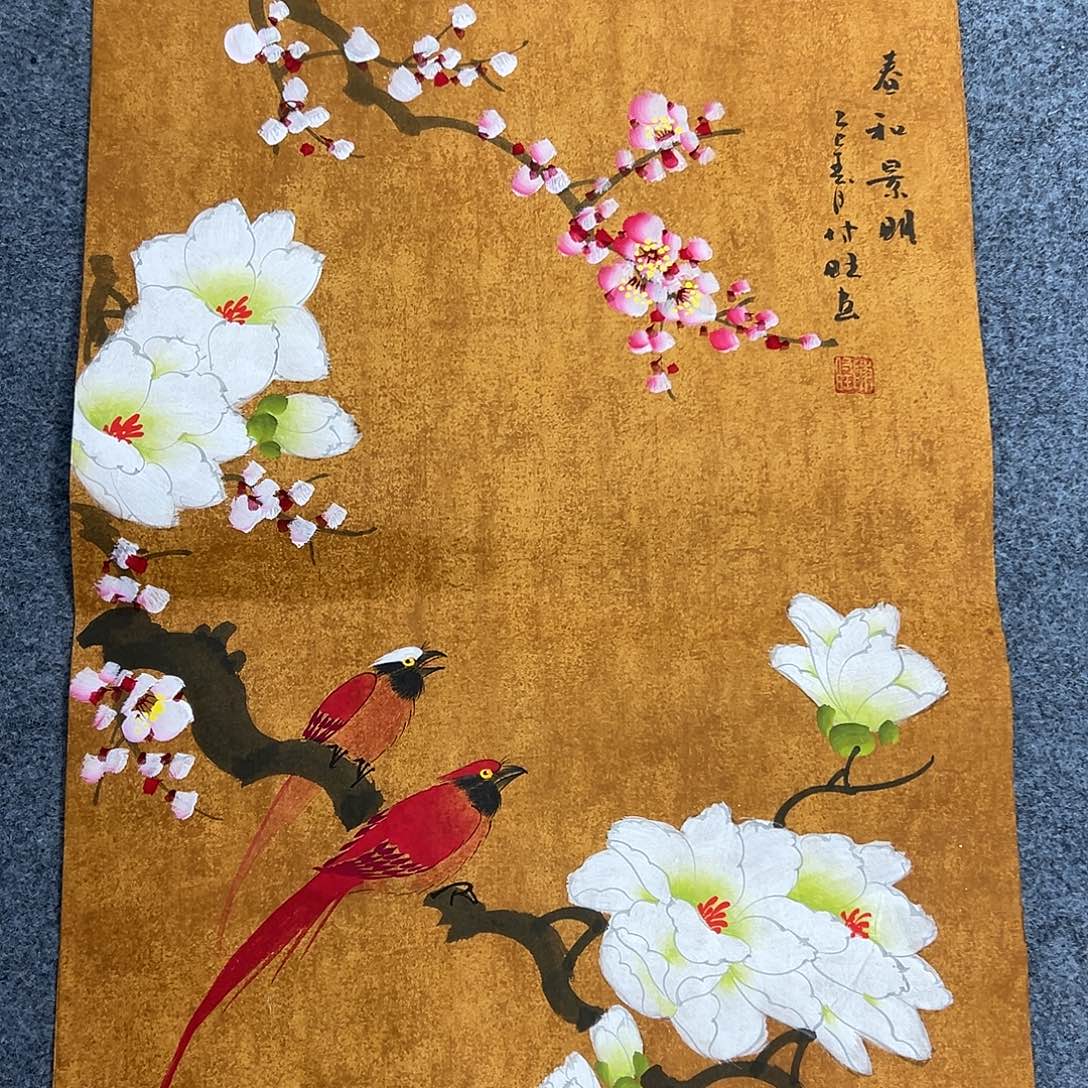 春和景明
乙巳春月付旺画